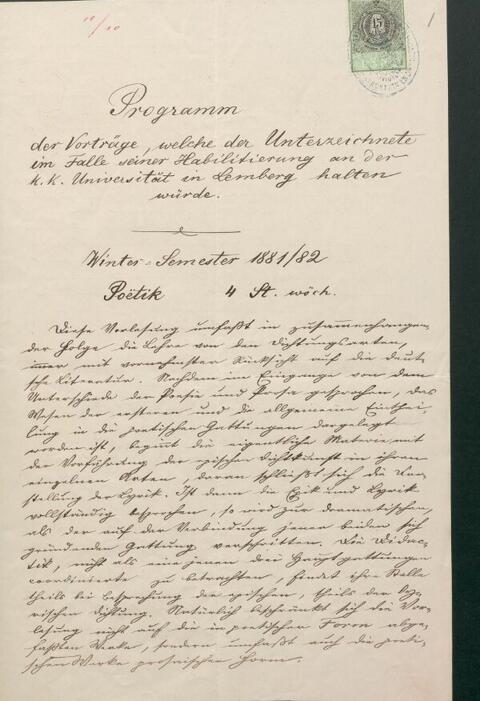 11/10
1
15
Programm
der Vorträge, welche der Unterzeichnete
im Falle seiner Habilitierung an der
k. k. Universität in Lemberg halten
würde.
Winter-Semester 1881/82
Poëtik 4 St. wöch.
Diese Vorlesung umfaßt in zusammenhängen
der Folge die Lehre von den Dichtungsarten,
immer mit vornehmster Rücksicht auf die deut
sche Literatur. Nachdem im Eingange von dem
Unterschiede der Poesie und Prosa gesprochen, das
Wesen der ersteren und die allgemeine Einthei
lung in die poetischen Gattungen dargelegt
worden ist, beginnt die eigentliche Materie mit
der Vorführung der epischen Dichtkunst in ihren
einzelnen Arten, daran schließt sich die Dar
stellung der Lyrik. Ist dann die Epik und Lyrik
vollständig besprochen, so wird zur dramatischen,
als der auf der Verbindung jener beiden sich
gründenden Gattung vorschritten. Die Didac
tik, nicht als eine jenen drei Hauptgattungen
coordinierte zu betrachten, findet ihre Stelle
theils bei Besprechung der epischen, theils der ly
rischen Dichtung. Natürlich beschränkt sich die Vor
lesung nicht auf die in poetischer Form abge
faßten Werke, sondern umfaßt auch die poeti
schen Werke prosaischer Form.